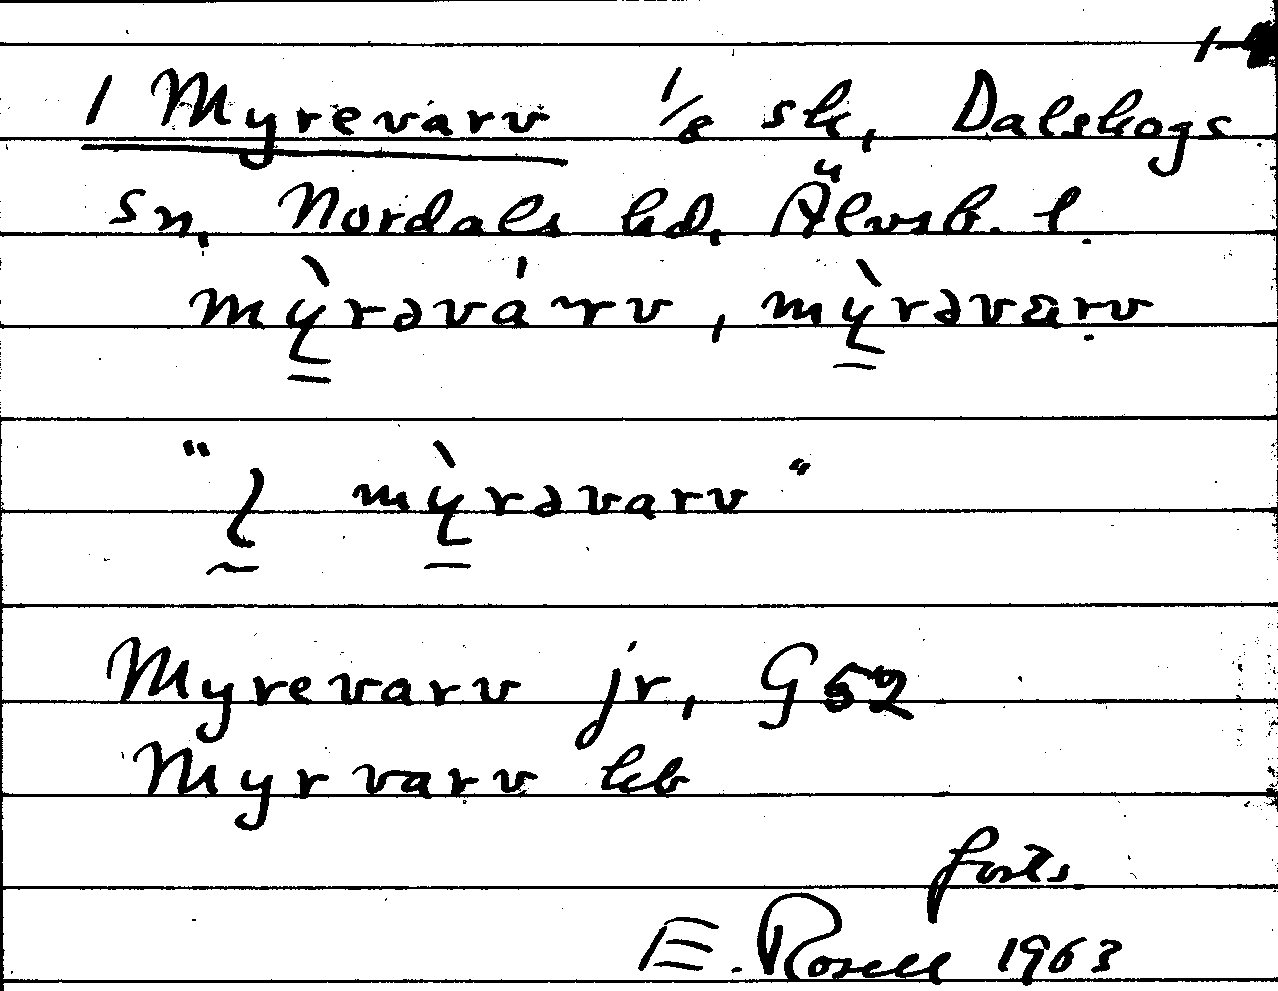 1 Myrevarv 1/8 sk, Dalskogs
sn, Nordals hd, Älvsb. l.
mỳrəvárv, mỳrəvarv
"ɩ mỳrəvarv"
Myrevarv jr, G52
Myrvarv kb
forts.
E. Rosell 1963